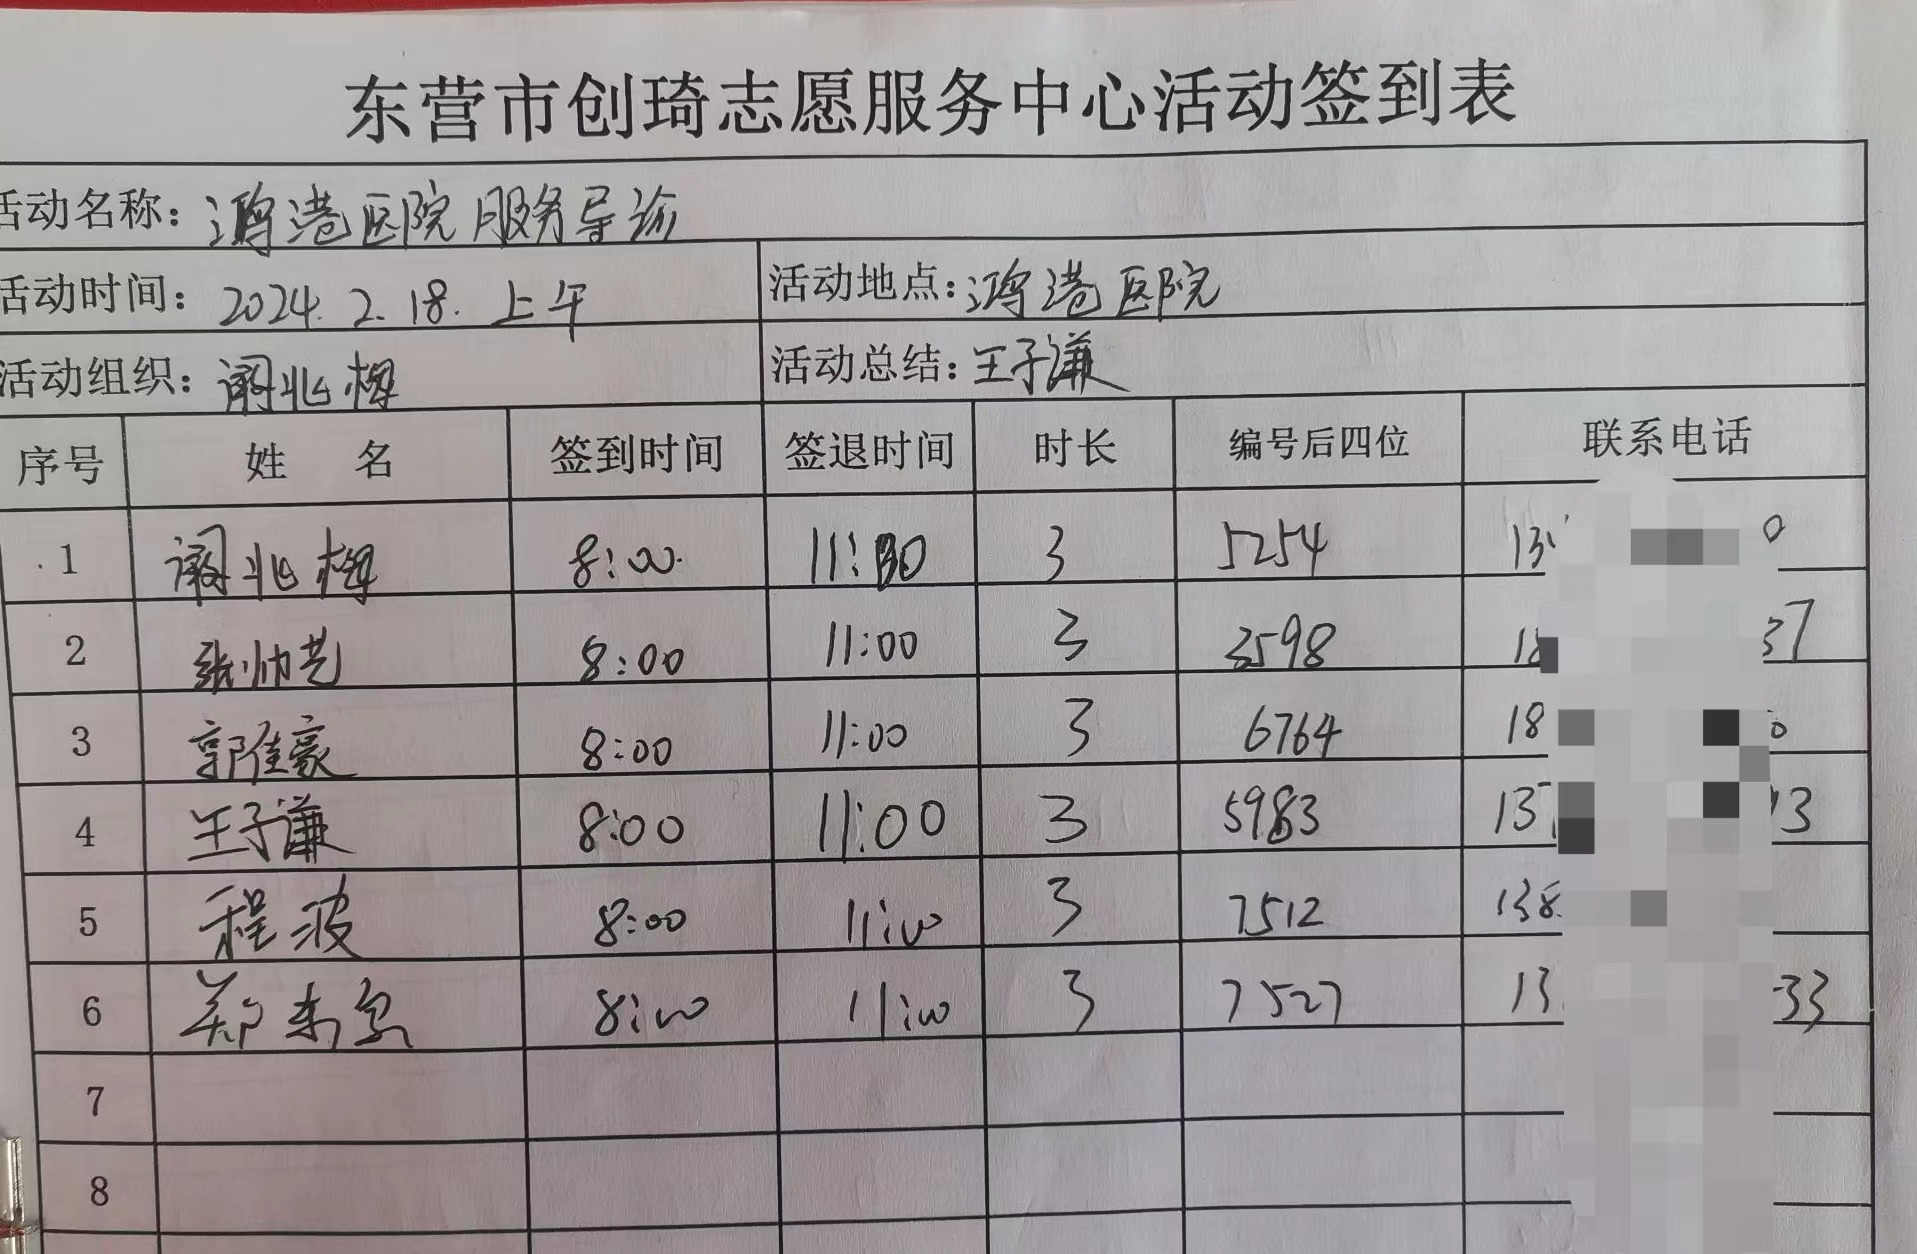 东营市创琦志愿服务中心活动签到表
活动名称：鸿港医院服务导诊
活动时间：2024.2.18.上午 活动地点：鸿港医院
活动组织：阚兆梅 活动总结：王子谦
序号 姓名 签到时间 签退时间 时长 编号后四位 联系电话
1 阚兆梅 8:00 11:30 3 5254 13 0
2 张帅艺 8:00 11:00 3 3598 18 37
3 郭佳豪 8:00 11:00 3 6764 18
4 王子谦 8:00 11:00 3 5983 13 13
5 程波 8:00 11:00 3 7512 138
6 郑 8:00 11:00 3 7527 13 33
7
8